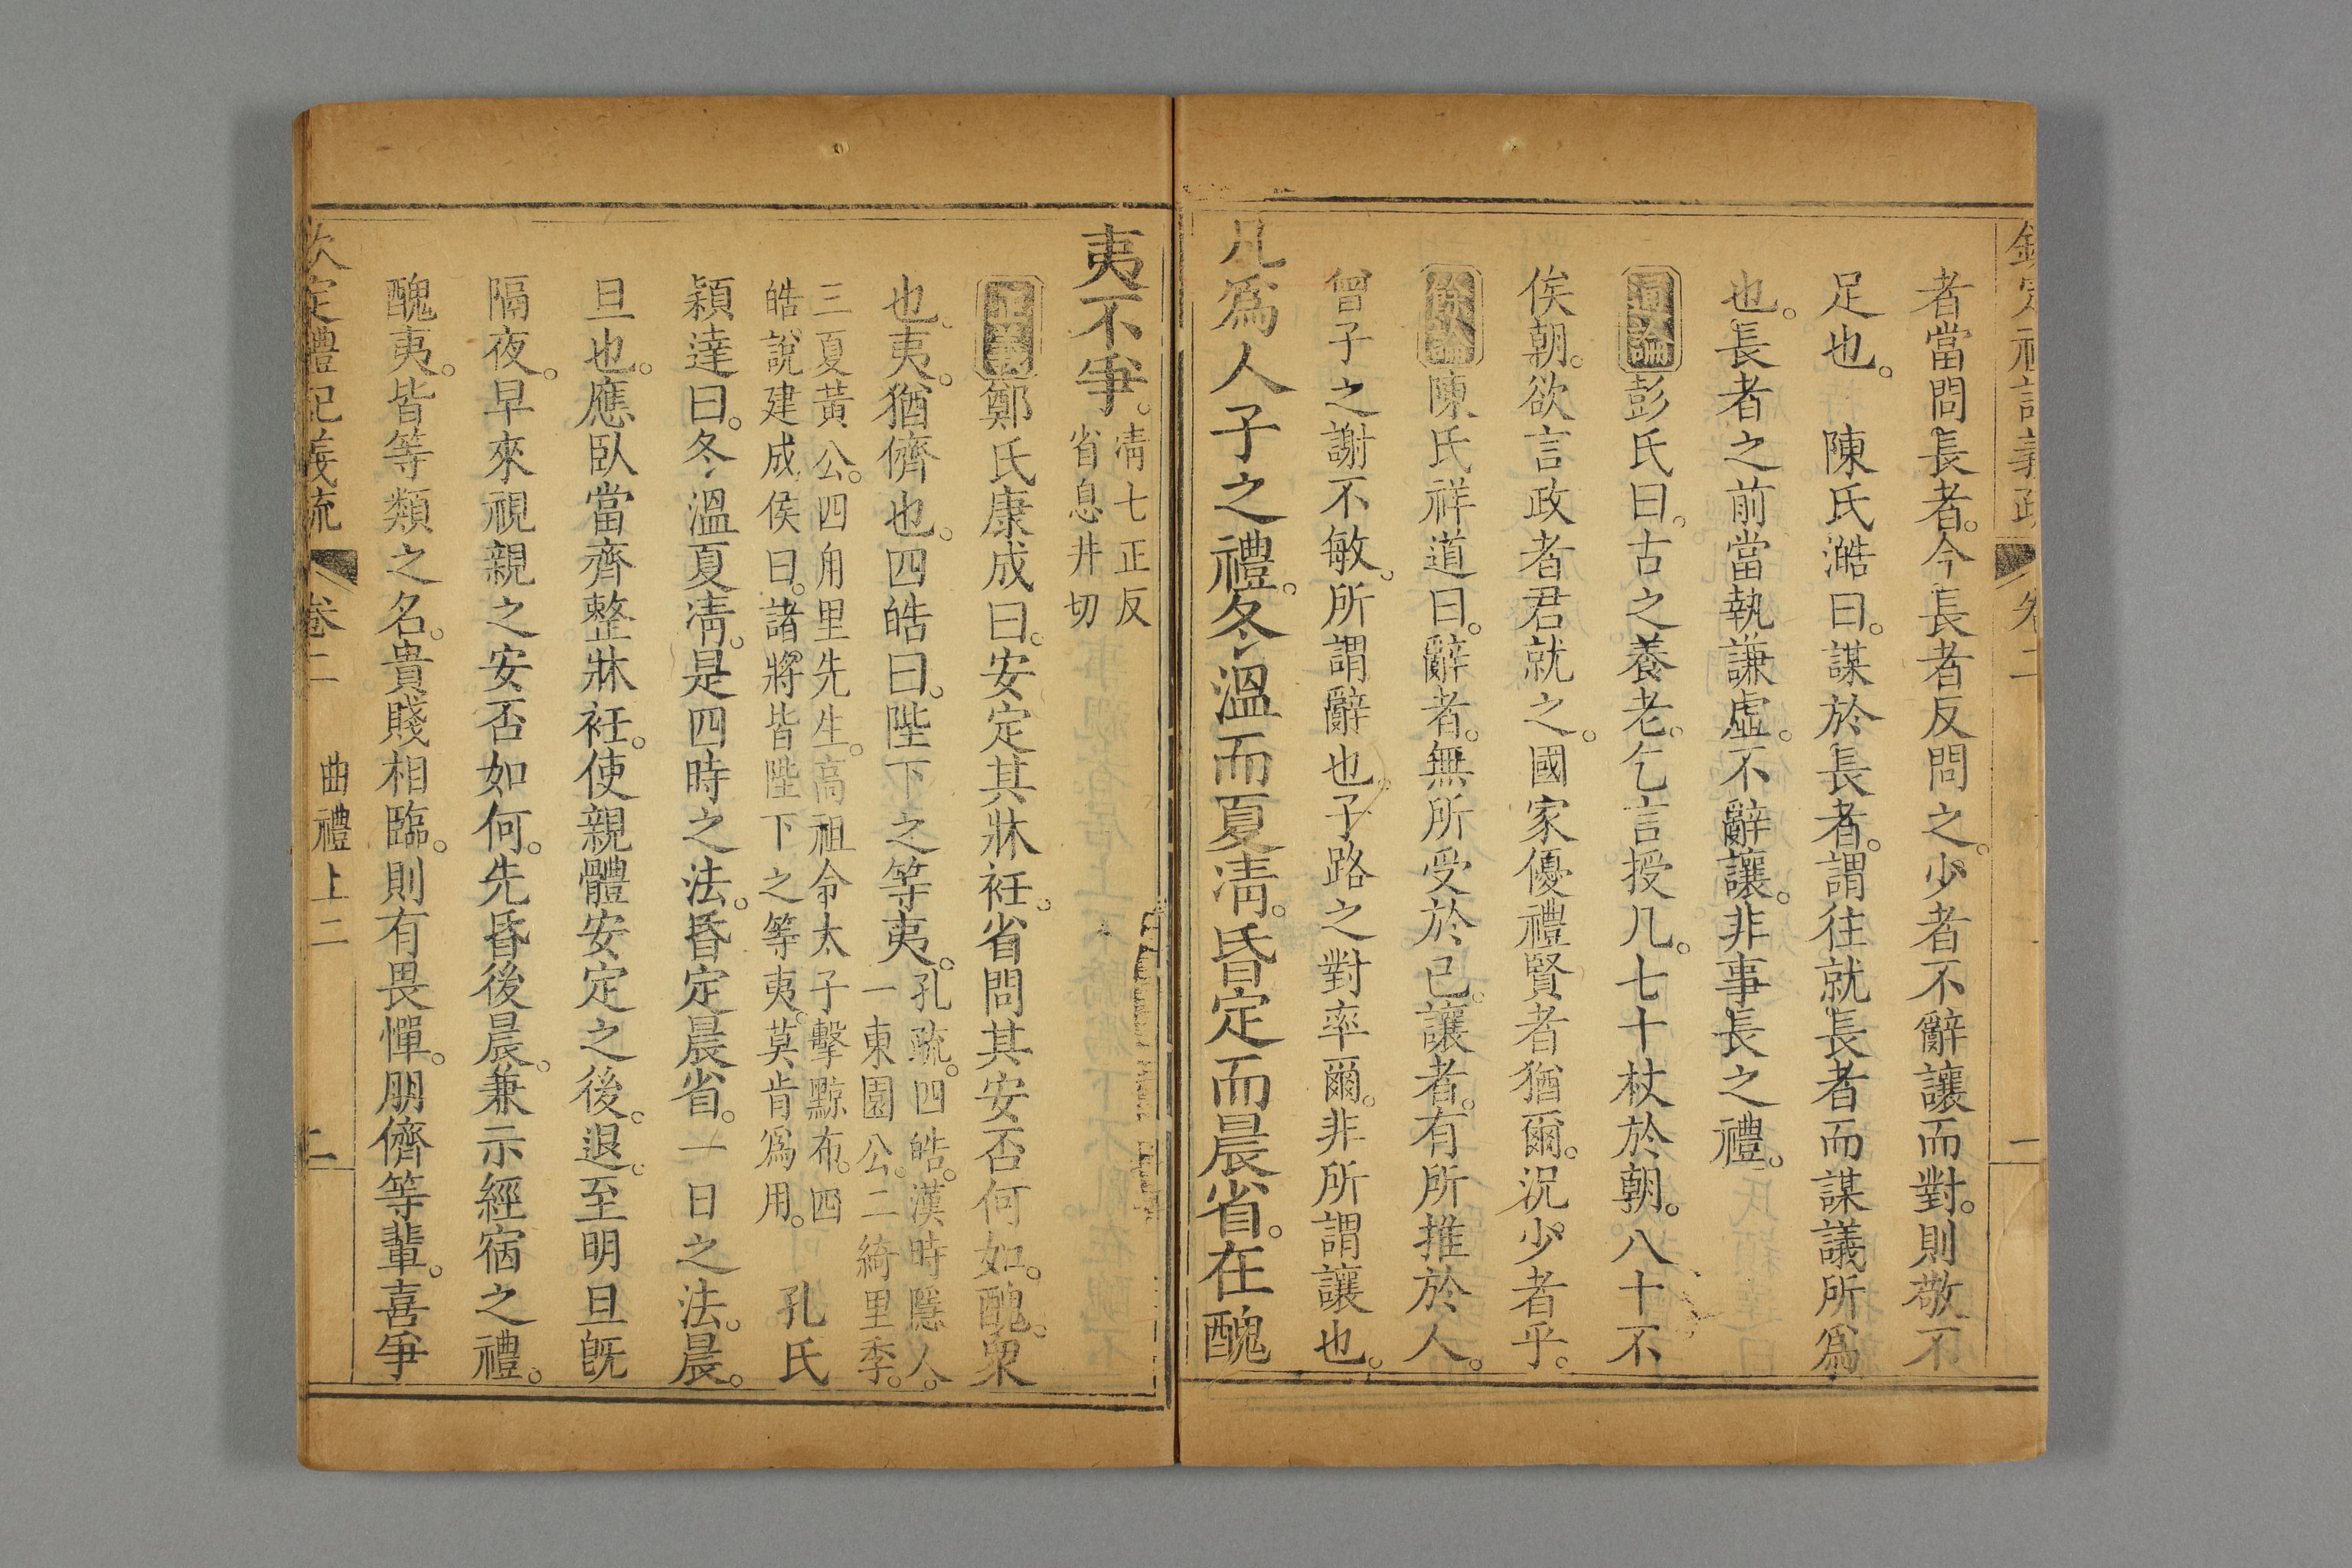 者當問長者。今長者反問之。少者不辭讓而對。則敬不
足也。 陳氏澔曰。謀於長者。謂往就長者而謀議所爲
也。長者之前當執謙虛。不辭讓。非事長之禮。
通論彭氏曰。古之養老。乞言授几。七十杖於朝。八十不
俟朝。欲言政者君就之。國家優禮賢者猶爾。況少者乎。
餘論陳氏祥道曰。辭者。無所受於已。讓者。有所推於人。
曾子之謝不敏。所謂辭也。子路之對率爾。非所謂讓也。
凡爲人子之禮。冬溫而夏凊。昏定而晨省。在醜
夷不爭。凊七正反
省息井切
正義鄭氏康成曰。安定其牀衽。省問其安否何如。醜。衆
也。夷。猶儕也。四皓曰。陛下之等夷。孔疏。四皓。漢時隱人。
一東園公。二綺里季。
三夏黃公。四甪里先生。高祖令太子擊黥布。四
皓說建成侯曰。諸將皆陛下之等夷。莫肯爲用。 孔氏
穎達曰。冬溫夏凊。是四時之法。昏定晨省。一日之法。晨。
旦也。應臥當齊整牀衽。使親體安定之後。退。至明旦旣
隔夜。早來視親之安否如何。先昏後晨。兼示經宿之禮。
醜夷。皆等類之名。貴賤相臨。則有畏憚。朋儕等輩。喜爭
欽定禮記義疏 卷二 曲禮上二 二